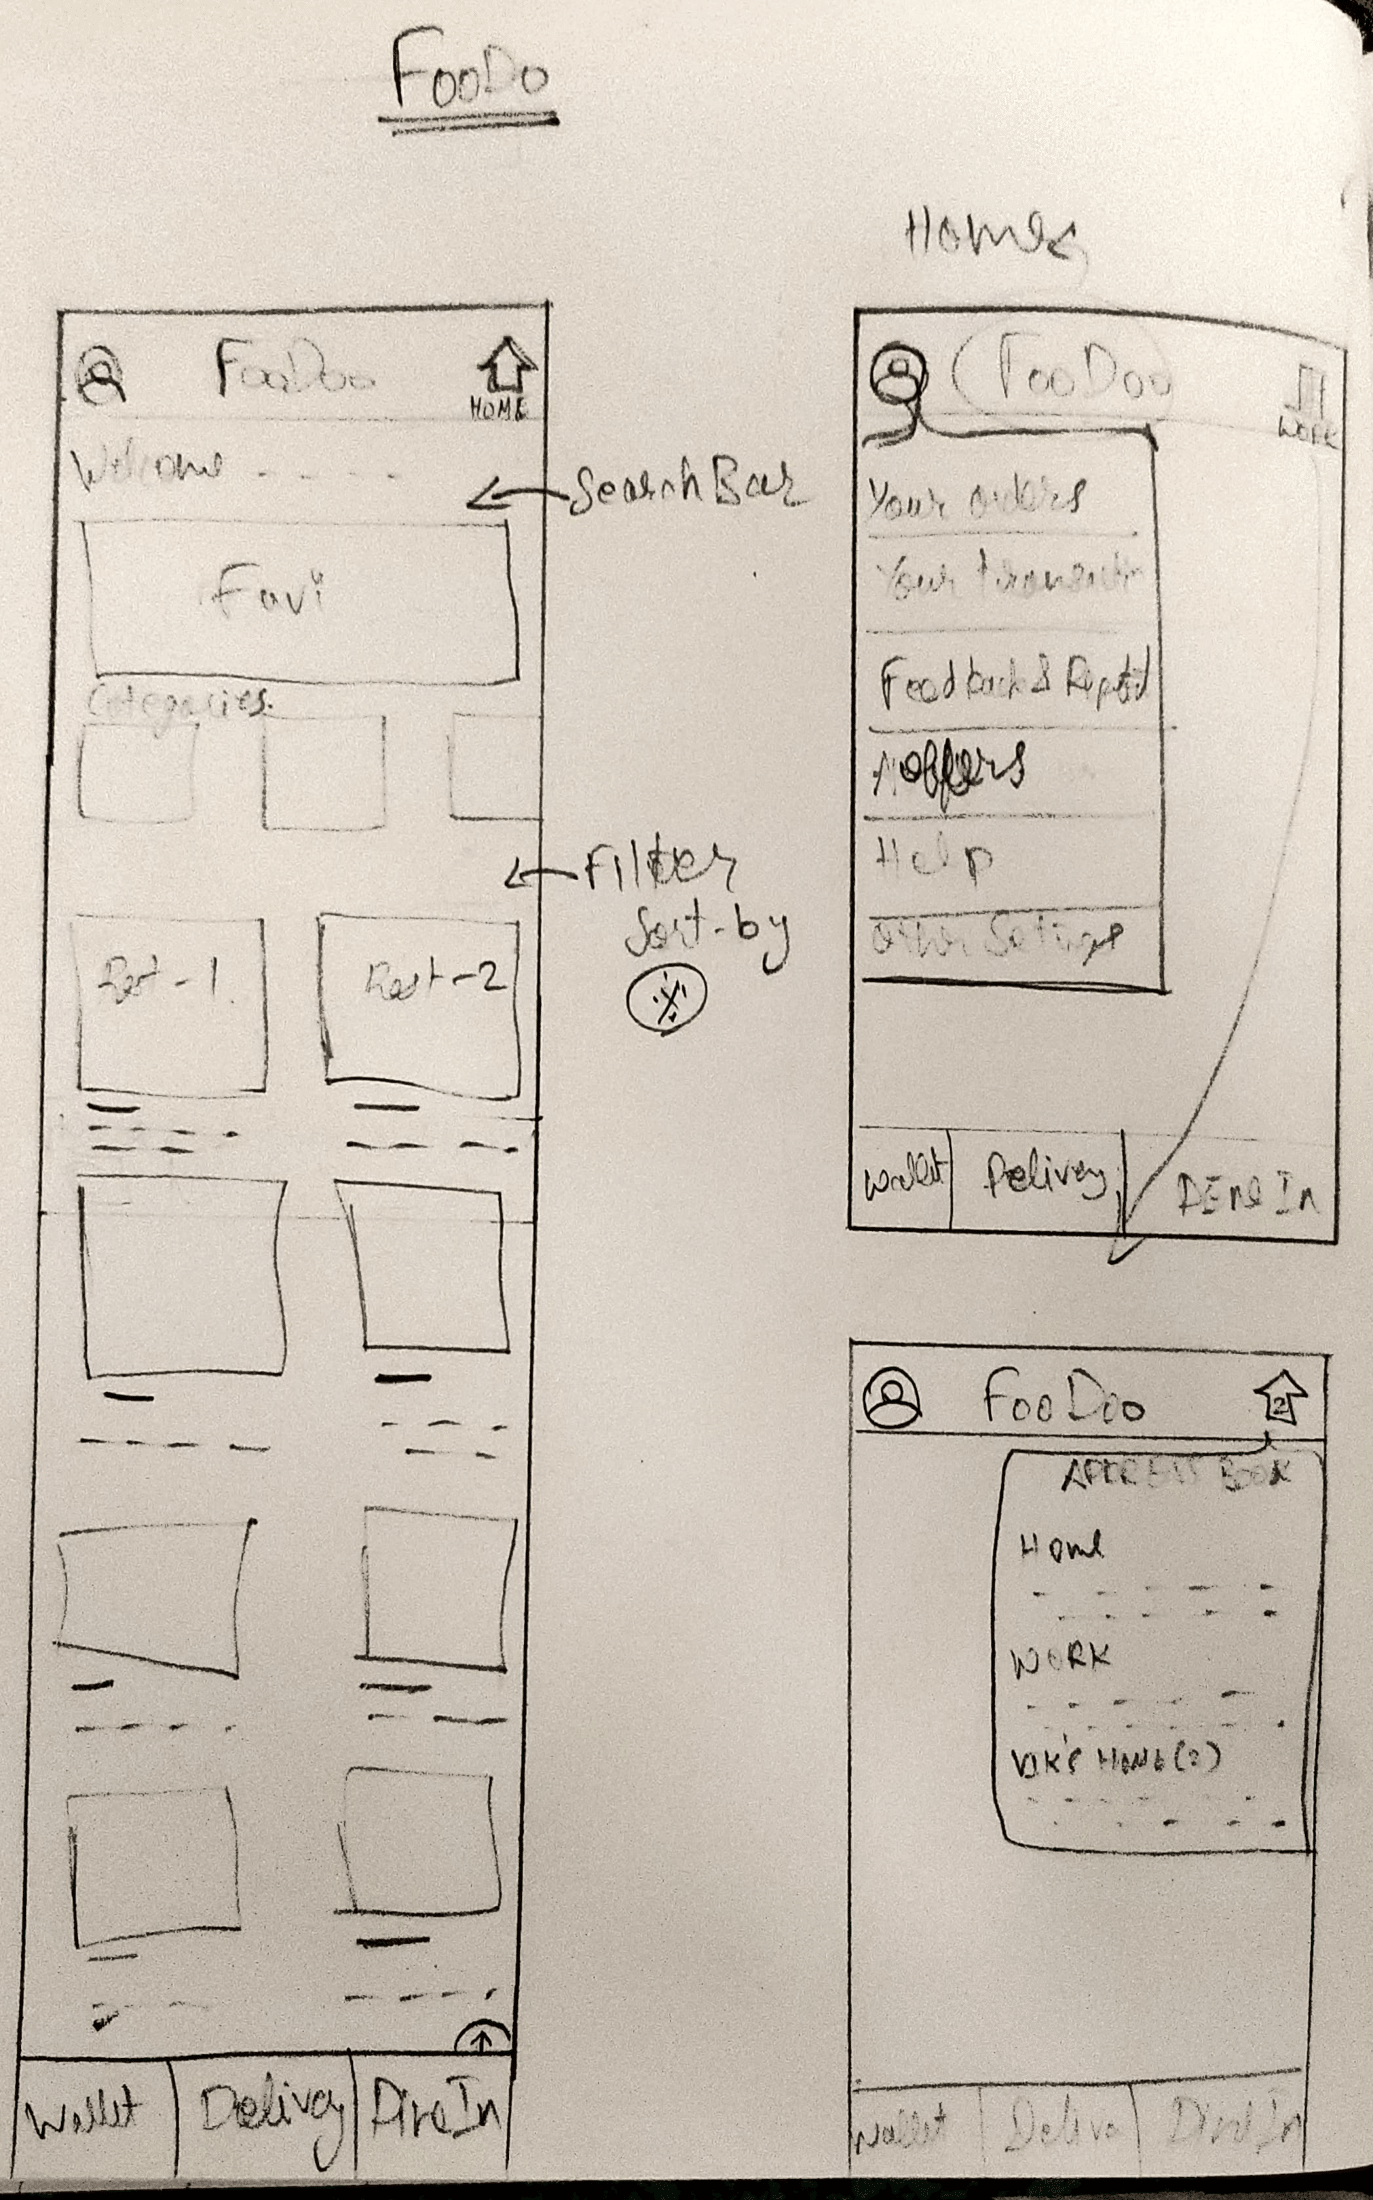 FooDo
Home
FooDoo
HOME
Welcome
Search Bar
Favi
Categories.
Filter
Sort-by
Rest-1.
Rest-2
Wallet
Delivey
Dine In
FooDoo
WORK
Your orders
Your transactn
Feedback &
offers
Help
Other Settings
Wallet
Delivey
DIne In
FooDoo
2
ADDRESS BOOK
Home
WORK
VIK's HOME(2)
Wallet
Delive
Dine In